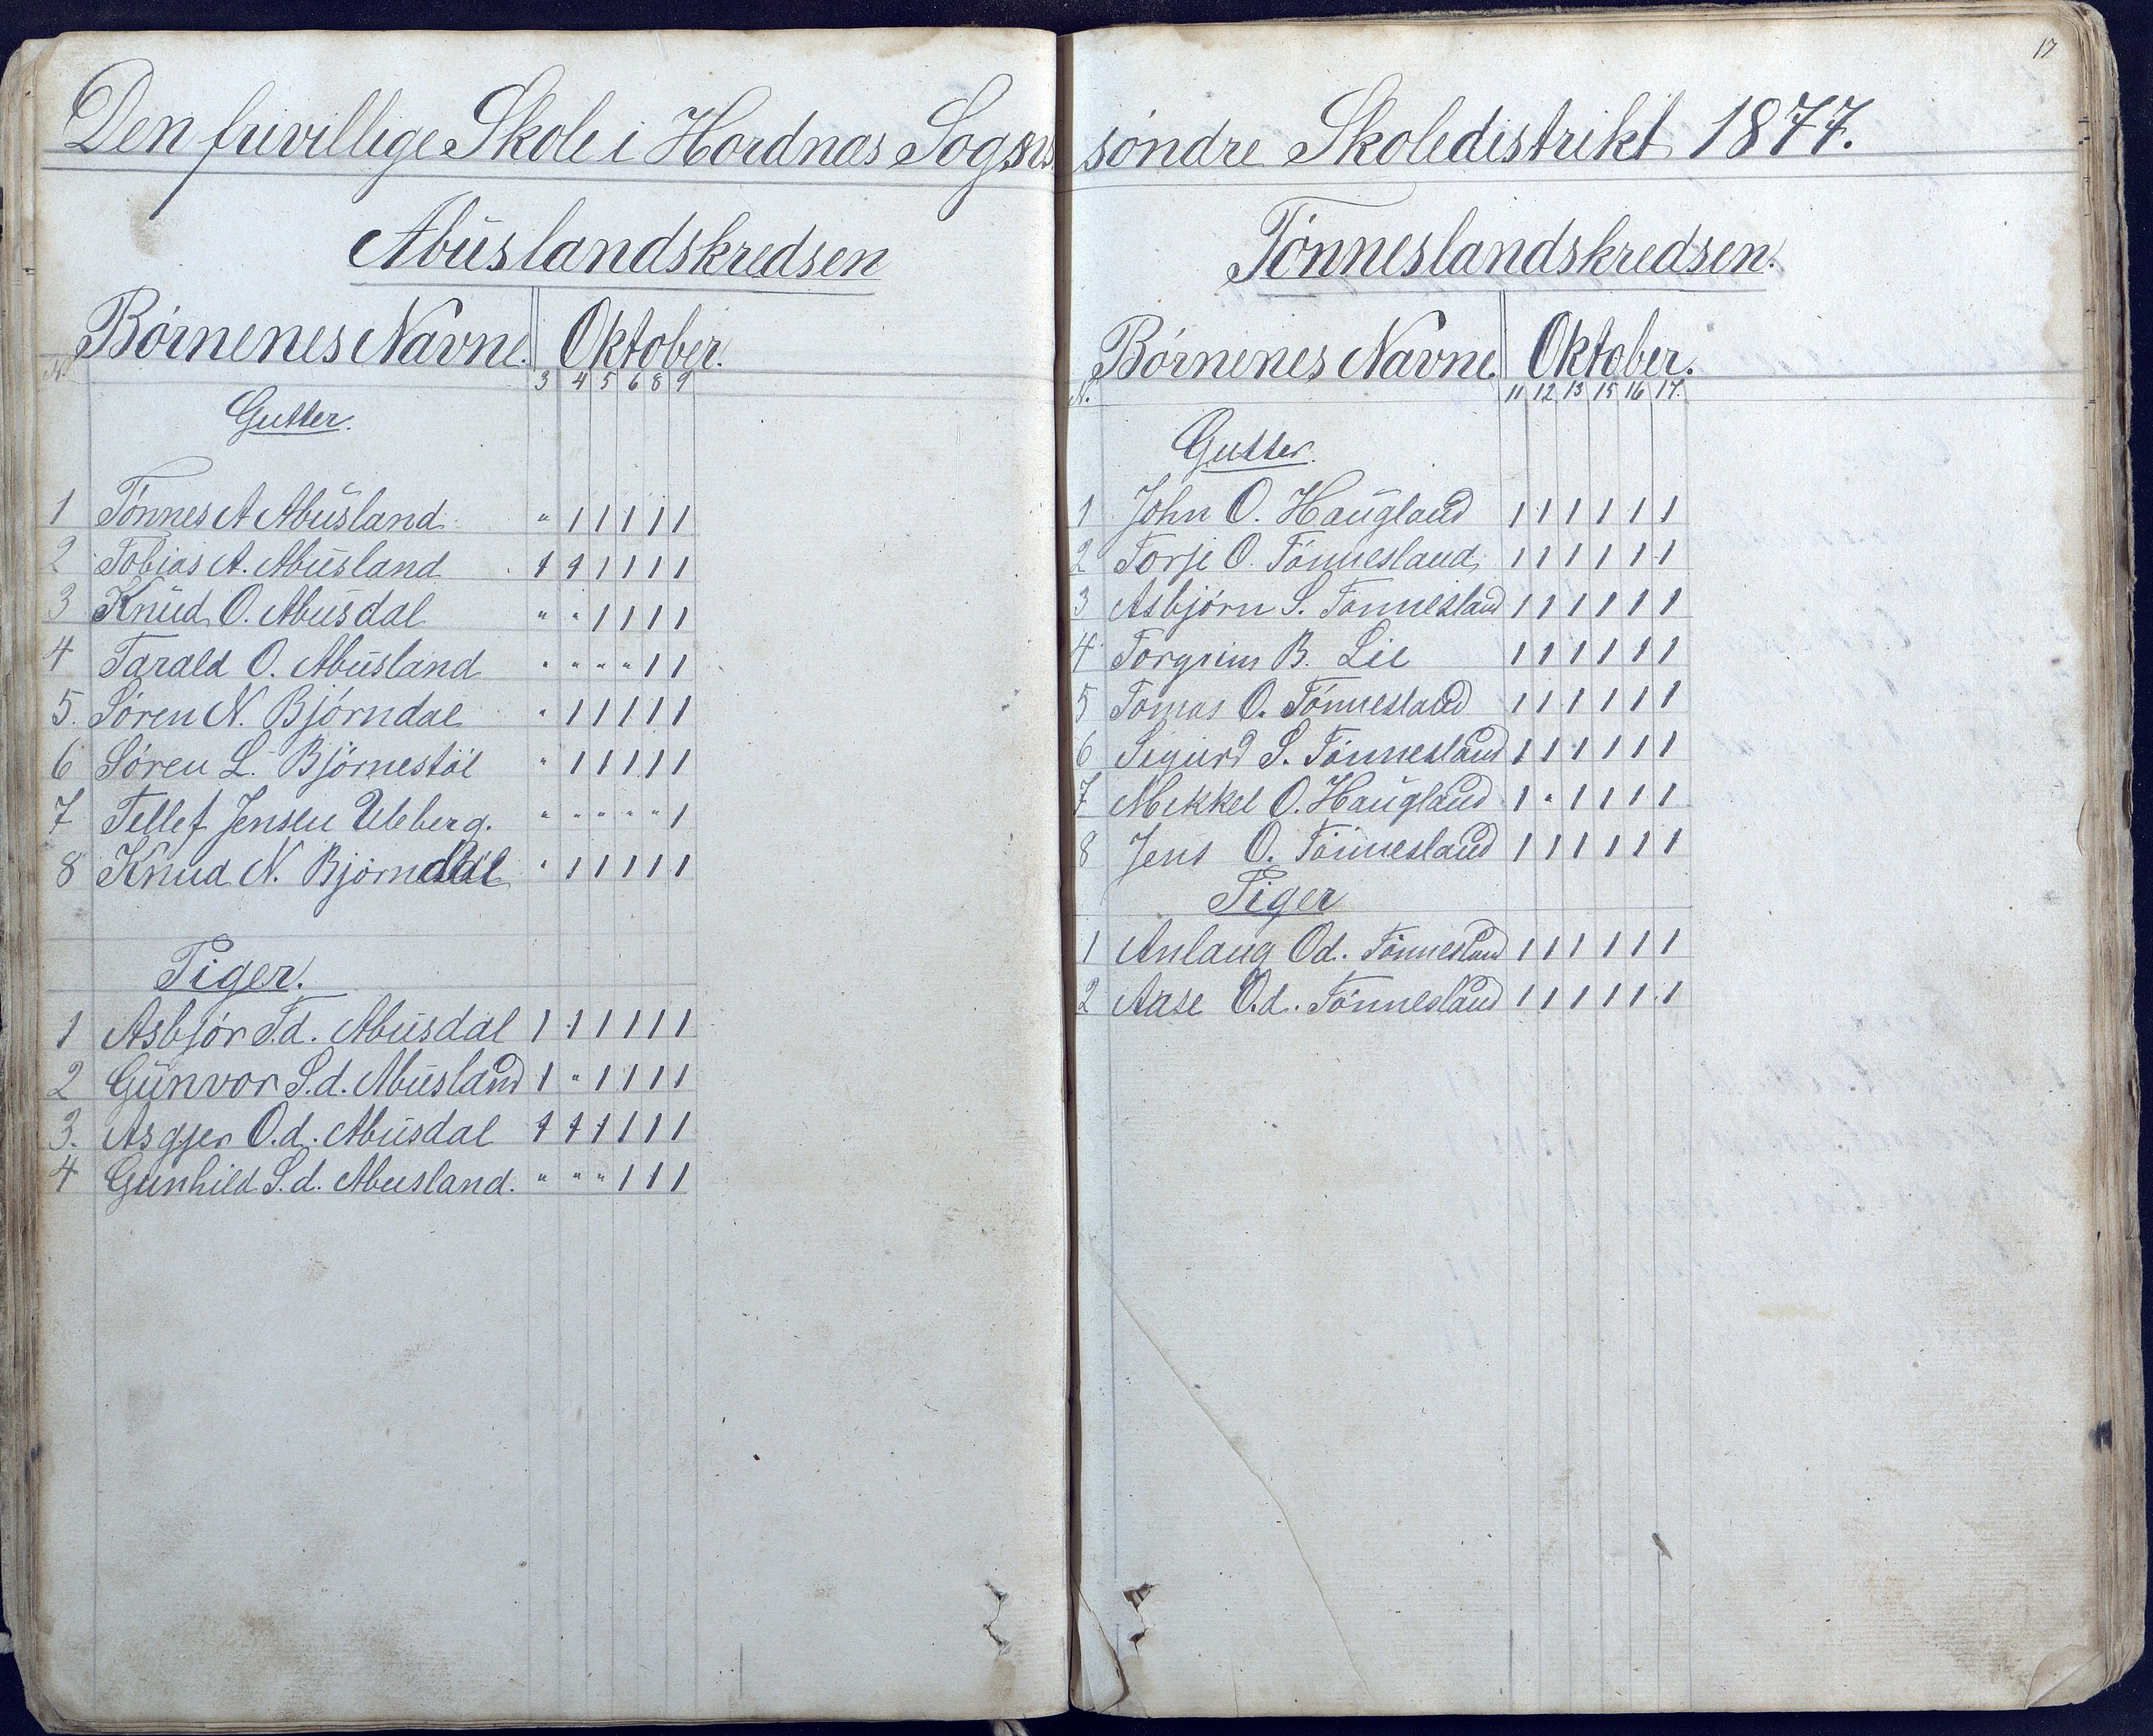 Den frivillige Skole i Hordnæs Sogns
Abuslandskredsen
Börnenes Navne. Oktober.
N. 3 4 5 6 8 9
Gutter.
1 Tönnes A Abusland " 1 1 1 1 1
2 Tobias A. Abusland 1 1 1 1 1 1
3 Knud O. Abusdal " " 1 1 1 1
4 Tarald O. Abusland " " " " 1 1
5. Sören N. Björndal " 1 1 1 1 1
6 Sören L. Björnestöl " 1 1 1 1 1
7 Tellef Jensen Uleberg. " " " " " 1
8 Knud N. Björndal " 1 1 1 1 1
Piger.
1 Asbjör T.d. Abusdal 1 1 1 1 1 1
2 Gunvor S.d. Abusland 1 " 1 1 1 1
3. Asgjer O.d. Abusdal 1 1 1 1 1 1
4 Gunhild S.d. Abusland. " " " 1 1 1
17
söndre Skoledistrikt 1877.
Tönneslandskredsen.
Börnenes Navne. Oktober.
N. 11 12 13 15 16 17.
Gutter.
1 John O. Haugland 1 1 1 1 1 1
2 Torje O. Tönnesland 1 1 1 1 1 1
3 Asbjörn S. Tönnesland 1 1 1 1 1 1
4 Torgrim B. Lie 1 1 1 1 1 1
5 Tomas O. Tönnesland 1 1 1 1 1 1
6 Sigurd S. Tönnesland 1 1 1 1 1 1
7 Mikkel O. Haugland 1 " 1 1 1 1
8 Jens O. Tönnesland 1 1 1 1 1 1
Piger
1 Anlaug Od. Tönnesland 1 1 1 1 1 1
2 Aase O.d. Tönnesland 1 1 1 1 1 1